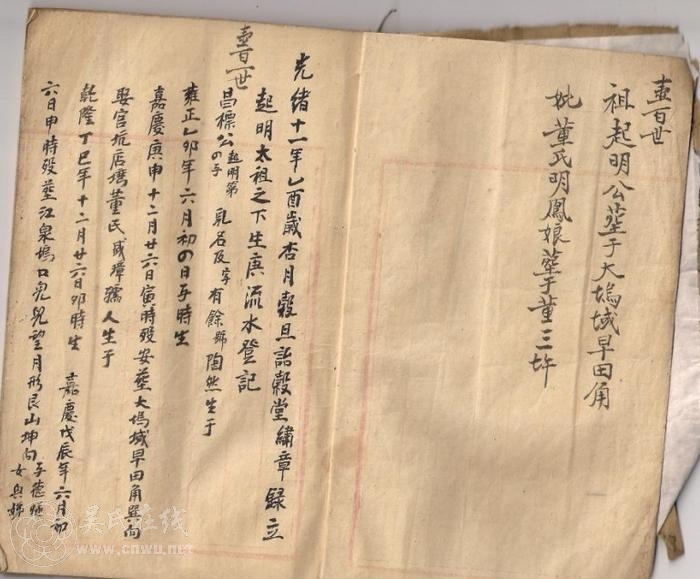 壺百世
祖起明公葬于大塢域早田角
妣董氏明鳳娘葬于董三圻
光緒十一年乙酉歲杏月穀旦詒穀堂繡章錄立
起明太祖之下生庚流水登記
壺百一世
昌標公 起明第の子 乳名及字有餘號陶然生于
雍正乙卯年六月初の日子時生
嘉慶庚申十二月廿六日寅時歿安葬大塢域早田角巽向
娶官坑店塆董氏咸璋孺人生于
乾隆丁巳年十二月廿六日卯時生 嘉慶戊辰年六月初
六日申時歿葬江泉塢口兒望月形艮山坤向 子德
女
吴氏在线
www.cnwu.net